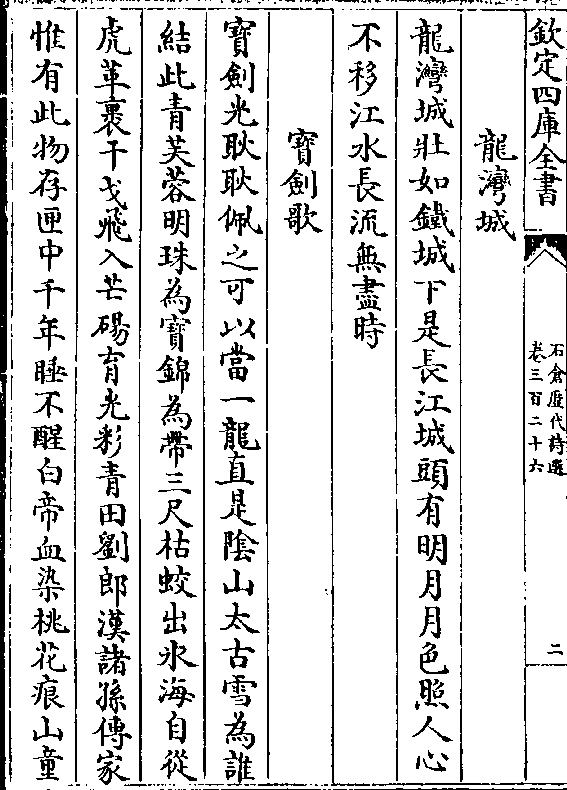 欽定四庫全書
石倉歷代詩選
卷三百二十六
二
龍灣城
龍灣城壯如鐵城下是長江城頭有明月月色照人心
不移江水長流無盡時
寶劍歌
寶劍光耿耿佩之可以當一龍直是陰山太古雪為誰
結此青芙蓉明珠為寶錦為帶三尺枯蛟出氷海自從
虎革裹干戈飛入芒碭育光彩青田劉郎漢諸孫傳家
惟有此物存匣中千年睡不醒白帝血染桃花痕山童